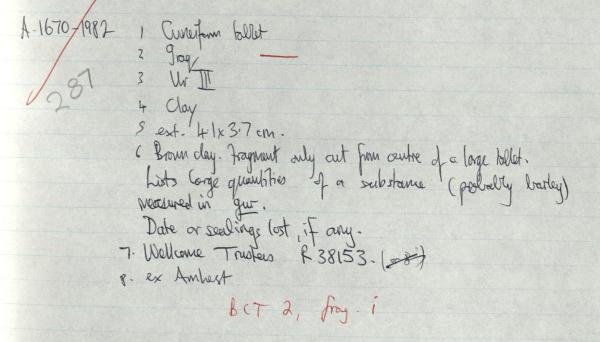 A.1670-1982 1 Cuneiform tablet
2 Iraq
3 Ur III
287
4 Clay
5 ext. 4.1x3.7cm.
6 Brown clay. Fragment only cut from centre of a large tablet.
Lists large quantities of a substance (probably barley)
measured in gur.
Date or sealings lost, if any.
7. Wellcome Trustees R38153.
8. ex Amherst
BCT 2, frag. i